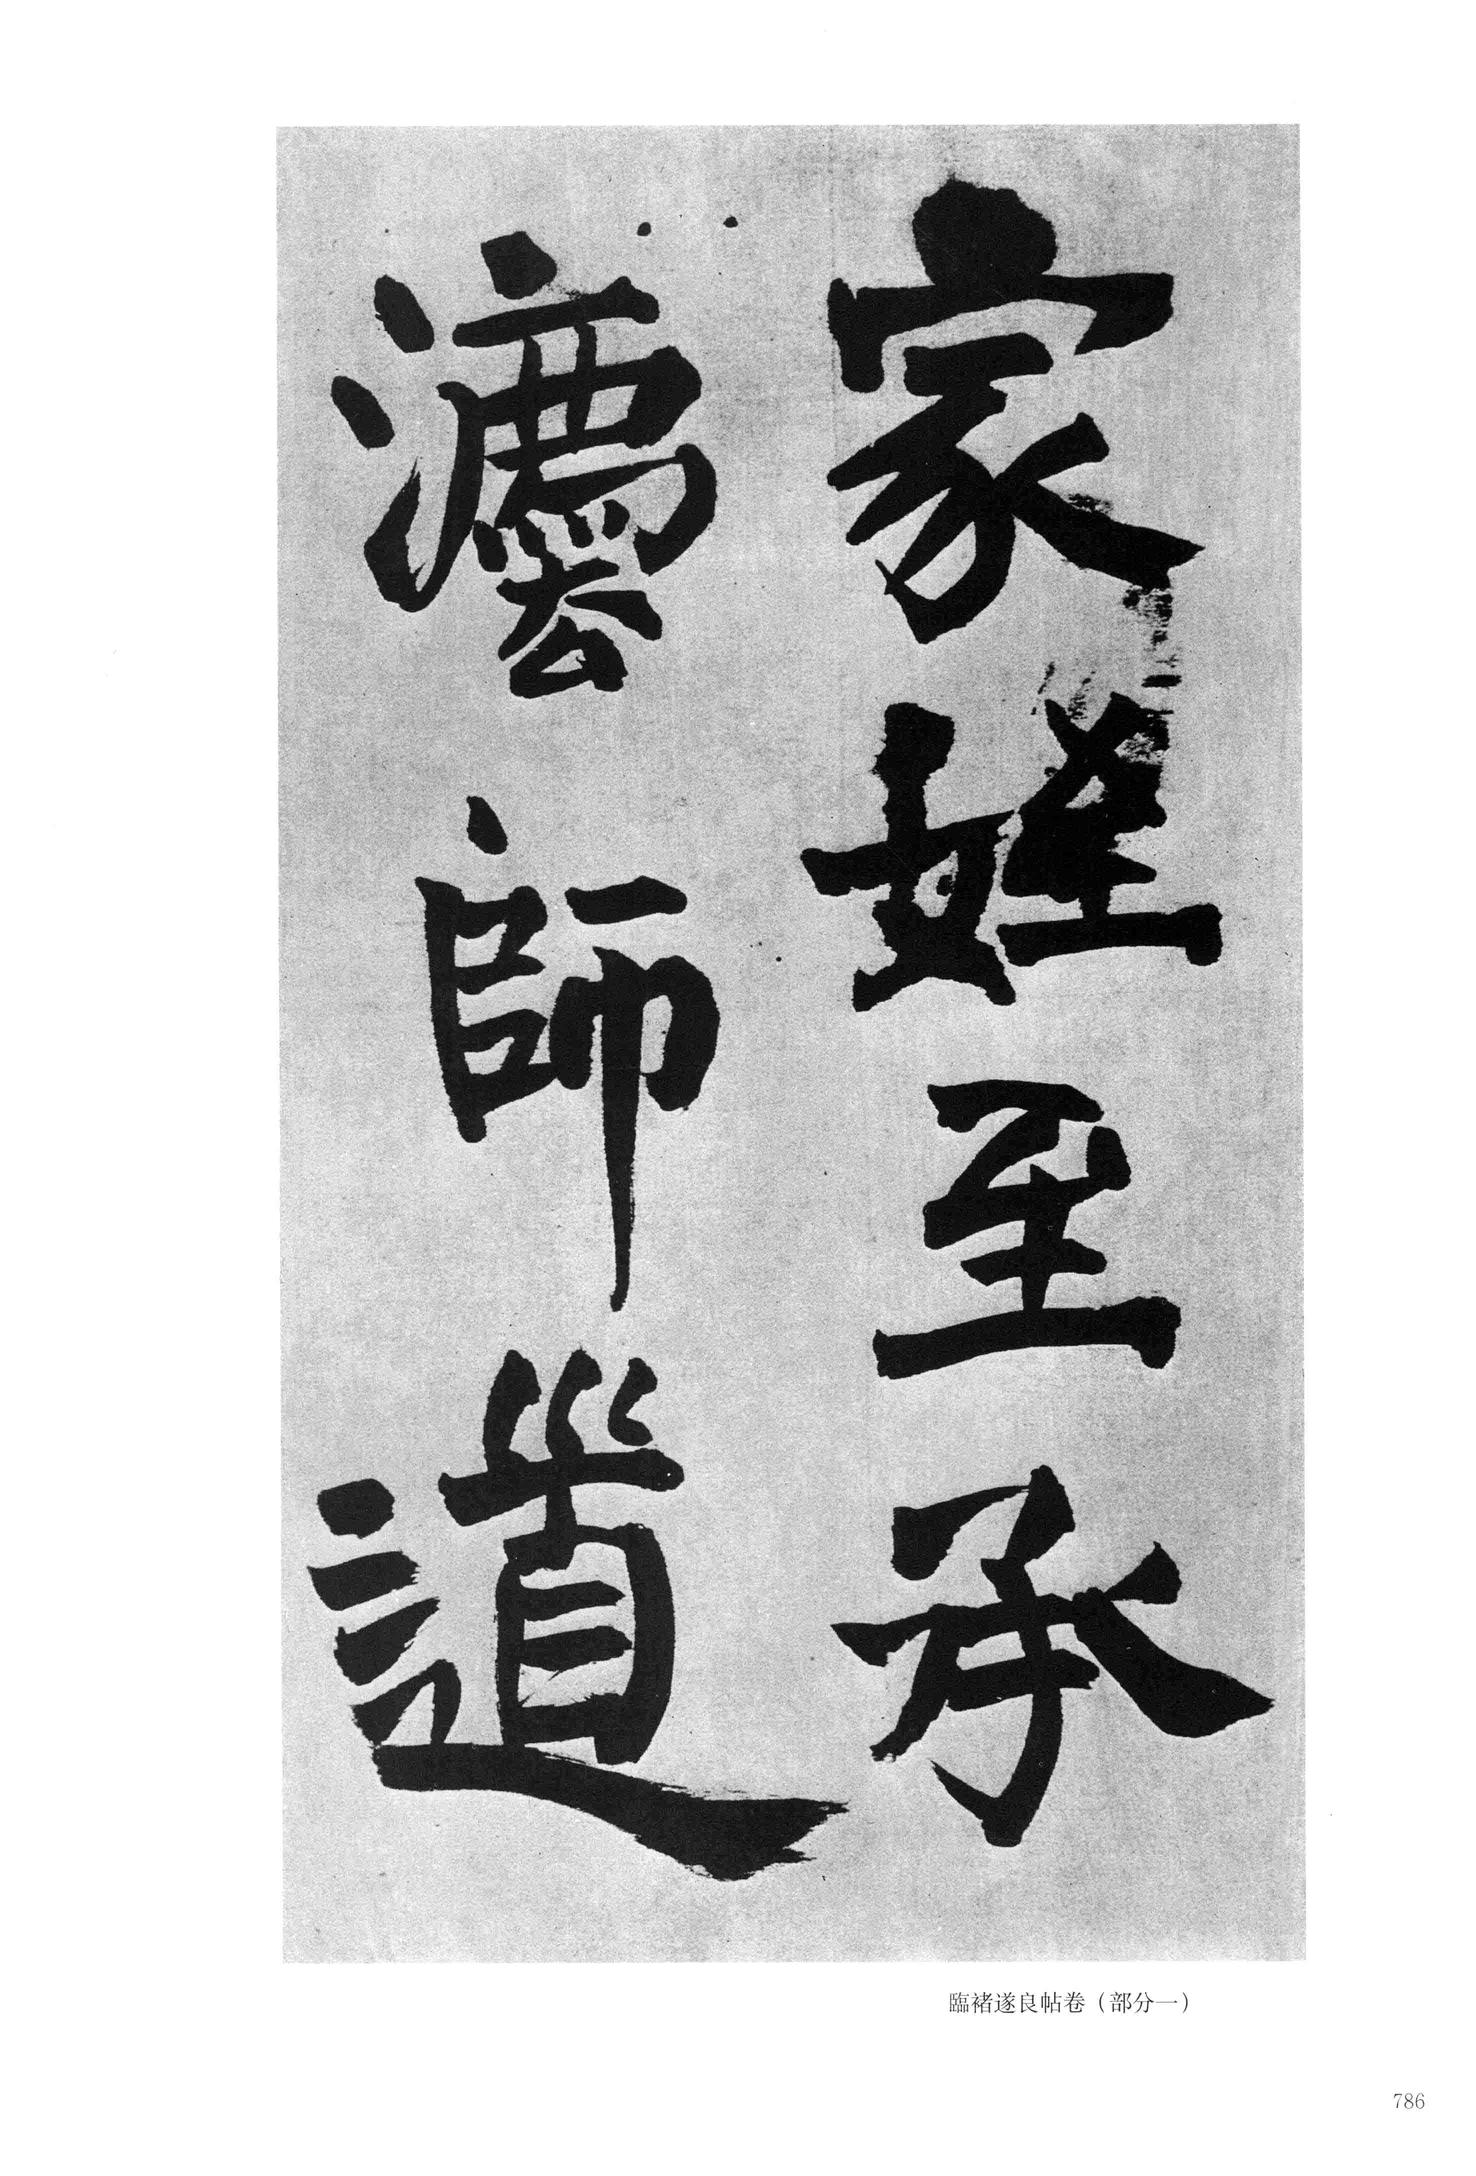 家姪至承
灋師道
臨褚遂良帖卷（部分一）
786